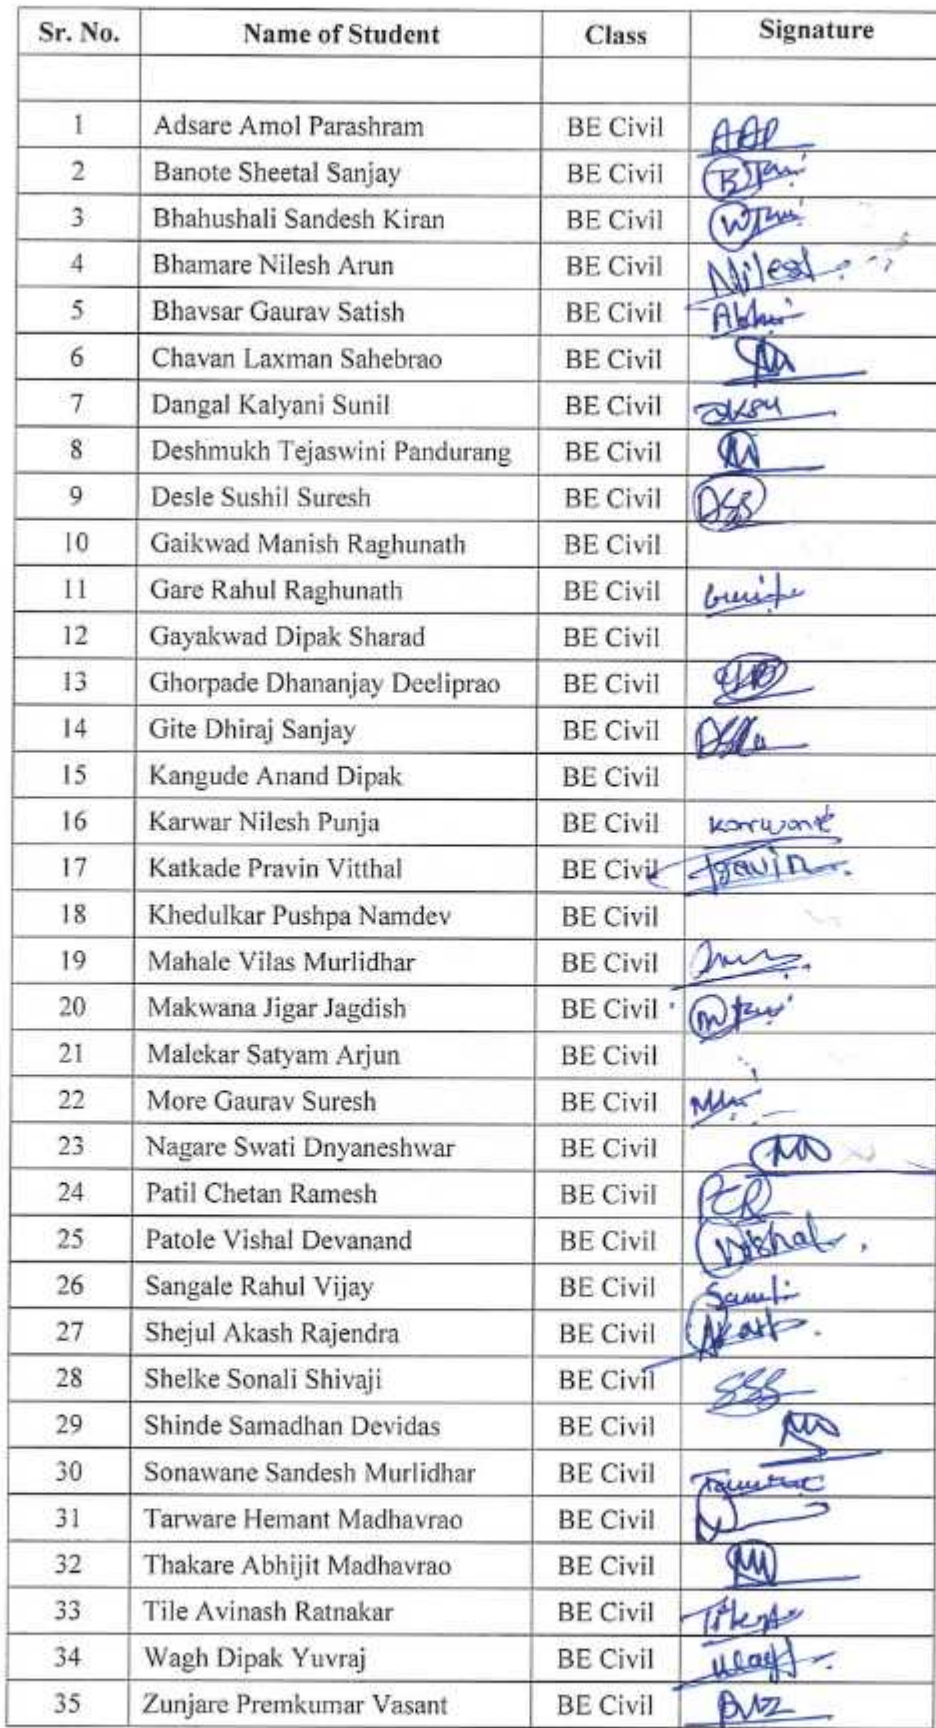 Sr. No. Name of Student Class Signature
1 Adsare Amol Parashram BE Civil AAP
2 Banote Sheetal Sanjay BE Civil
3 Bhahushali Sandesh Kiran BE Civil
4 Bhamare Nilesh Arun BE Civil Nilesh
5 Bhavsar Gaurav Satish BE Civil
6 Chavan Laxman Sahebrao BE Civil
7 Dangal Kalyani Sunil BE Civil
8 Deshmukh Tejaswini Pandurang BE Civil
9 Desle Sushil Suresh BE Civil
10 Gaikwad Manish Raghunath BE Civil
11 Gare Rahul Raghunath BE Civil
12 Gayakwad Dipak Sharad BE Civil
13 Ghorpade Dhananjay Deeliprao BE Civil
14 Gite Dhiraj Sanjay BE Civil
15 Kangude Anand Dipak BE Civil
16 Karwar Nilesh Punja BE Civil
17 Katkade Pravin Vitthal BE Civil Pravin
18 Khedulkar Pushpa Namdev BE Civil
19 Mahale Vilas Murlidhar BE Civil
20 Makwana Jigar Jagdish BE Civil
21 Malekar Satyam Arjun BE Civil
22 More Gaurav Suresh BE Civil
23 Nagare Swati Dnyaneshwar BE Civil
24 Patil Chetan Ramesh BE Civil PCR
25 Patole Vishal Devanand BE Civil Vishal
26 Sangale Rahul Vijay BE Civil
27 Shejul Akash Rajendra BE Civil Akash
28 Shelke Sonali Shivaji BE Civil SSS
29 Shinde Samadhan Devidas BE Civil
30 Sonawane Sandesh Murlidhar BE Civil
31 Tarware Hemant Madhavrao BE Civil
32 Thakare Abhijit Madhavrao BE Civil
33 Tile Avinash Ratnakar BE Civil
34 Wagh Dipak Yuvraj BE Civil
35 Zunjare Premkumar Vasant BE Civil